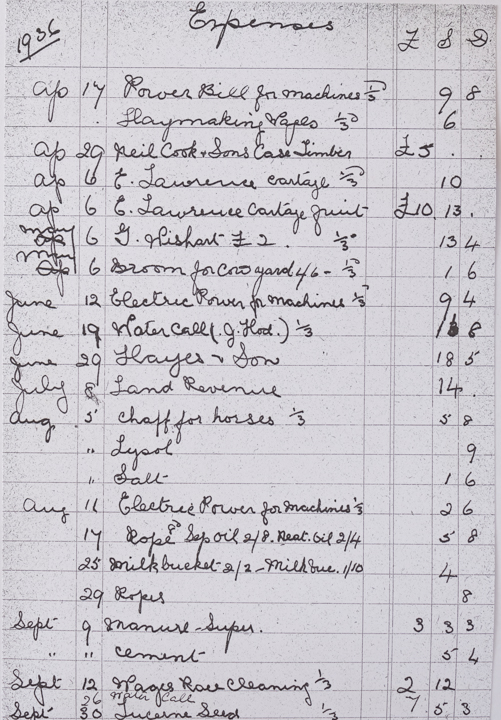 1936 Expenses £ S D
Ap 17 Power Bill for machines 1/3 9 8
Haymaking 1/3 6
Ap 29 Neil Cook & Sons Case Timber £5 . .
Ap 6 E. Lawrence Cartage 1/3 10
Ap 6 E. Lawrence Cartage fruit £10 13 .
May 6 G. Wishart £2 . 1/3 13 4
May 6 Broom for Cow yard 4/6 - 1/3 1 6
June 12 Electric Power for machines 1/3 9 4
June 19 Water Call (J. Hod.) 1/3 8
June 29 Hayes & Son 18 5
July 8 Land Revenue 14 .
Aug 5 Chaff for horses 1/3 5 8
" Lysol 9
" Salt 1 6
Aug 11 Electric Power for Machines 1/3 2 6
17 Rope 8D Sep oil 2/8. Neat. Oil 2/4 5 8
25 Milkbucket 2/2 - Milk buc. 1/10 4
29 Ropes 8
Sept 9 Manure Super. 3 3 3
" " Cement 5 4
Sept 12 Wages Race Cleaning 1/3 2 12
26 Water Call 7
Sept 30 Lucerne Seed 1/3 5 3